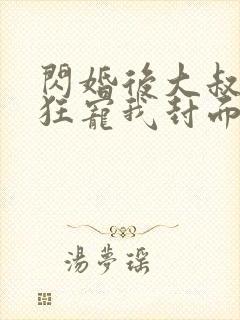 閃婚後大叔
狂寵我封面
湯夢瑤